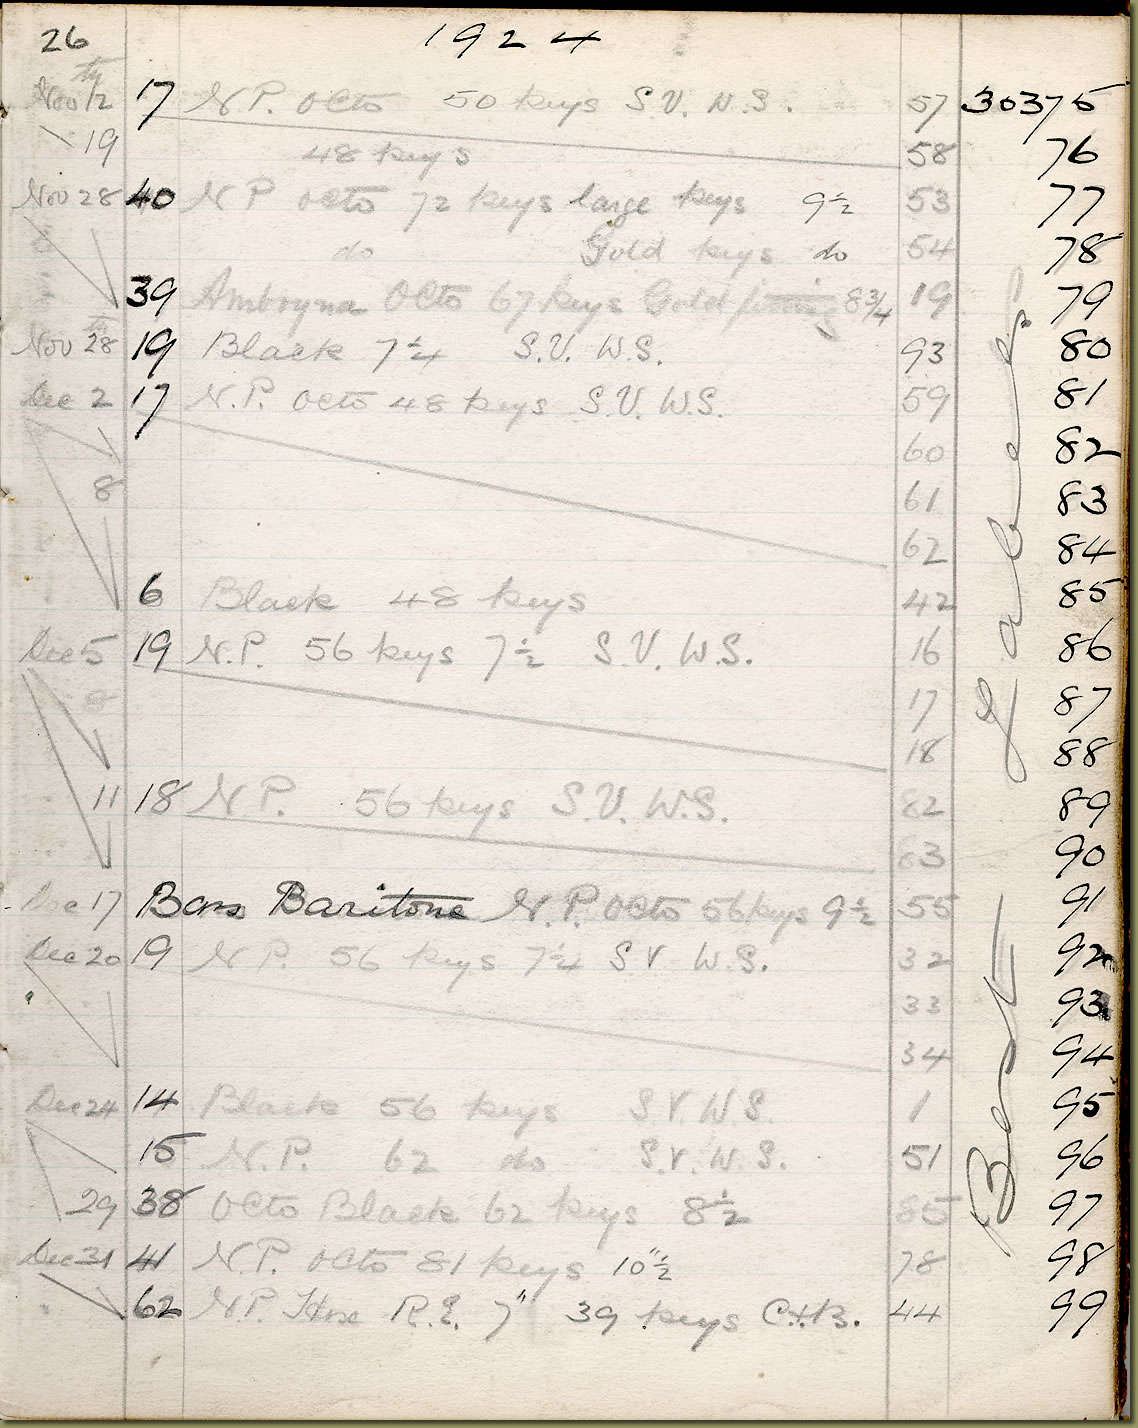 26 1924
Nov 12 17 N.P. Octo 50 keys S.V. W.S. 57 30375
19 48 keys 58 76
Nov 28 40 N P Octo 72 keys large keys 9½ 53 77
do Gold keys do 54 78
39 Amboyna Octo 67 keys Gold 8¾ 19 79
Nov 28 19 Black 7¼ S.V. W.S. 93 80
Dec 2 17 N.P. Octo 48 keys S.V. W.S. 59 81
60 82
8 61 83
62 84
6 Black 48 keys 42 85
Dec 5 19 N.P. 56 keys 7½ S.V. W.S. 16 86
8 17 87
18 88
11 18 N.P. 56 keys S.V. W.S. 82 89
83 90
Dec 17 Bass Baritone N.P. Octo 56 keys 9½ 55 91
Dec 20 19 N.P. 56 keys 7¼ S V W.S. 32 92
33 93
34 94
Dec 24 14 Black 56 keys S.V. W.S. 1 95
15 N.P. 62 do S.V. W.S. 51 96
29 38 Octo Black 62 keys 8½ 85 97
Dec 31 41 N.P. Octo 81 keys 10"½ 78 98
62 N.P. Hex R.E. 7" 39 keys C.& B. 44 99
Best Labels